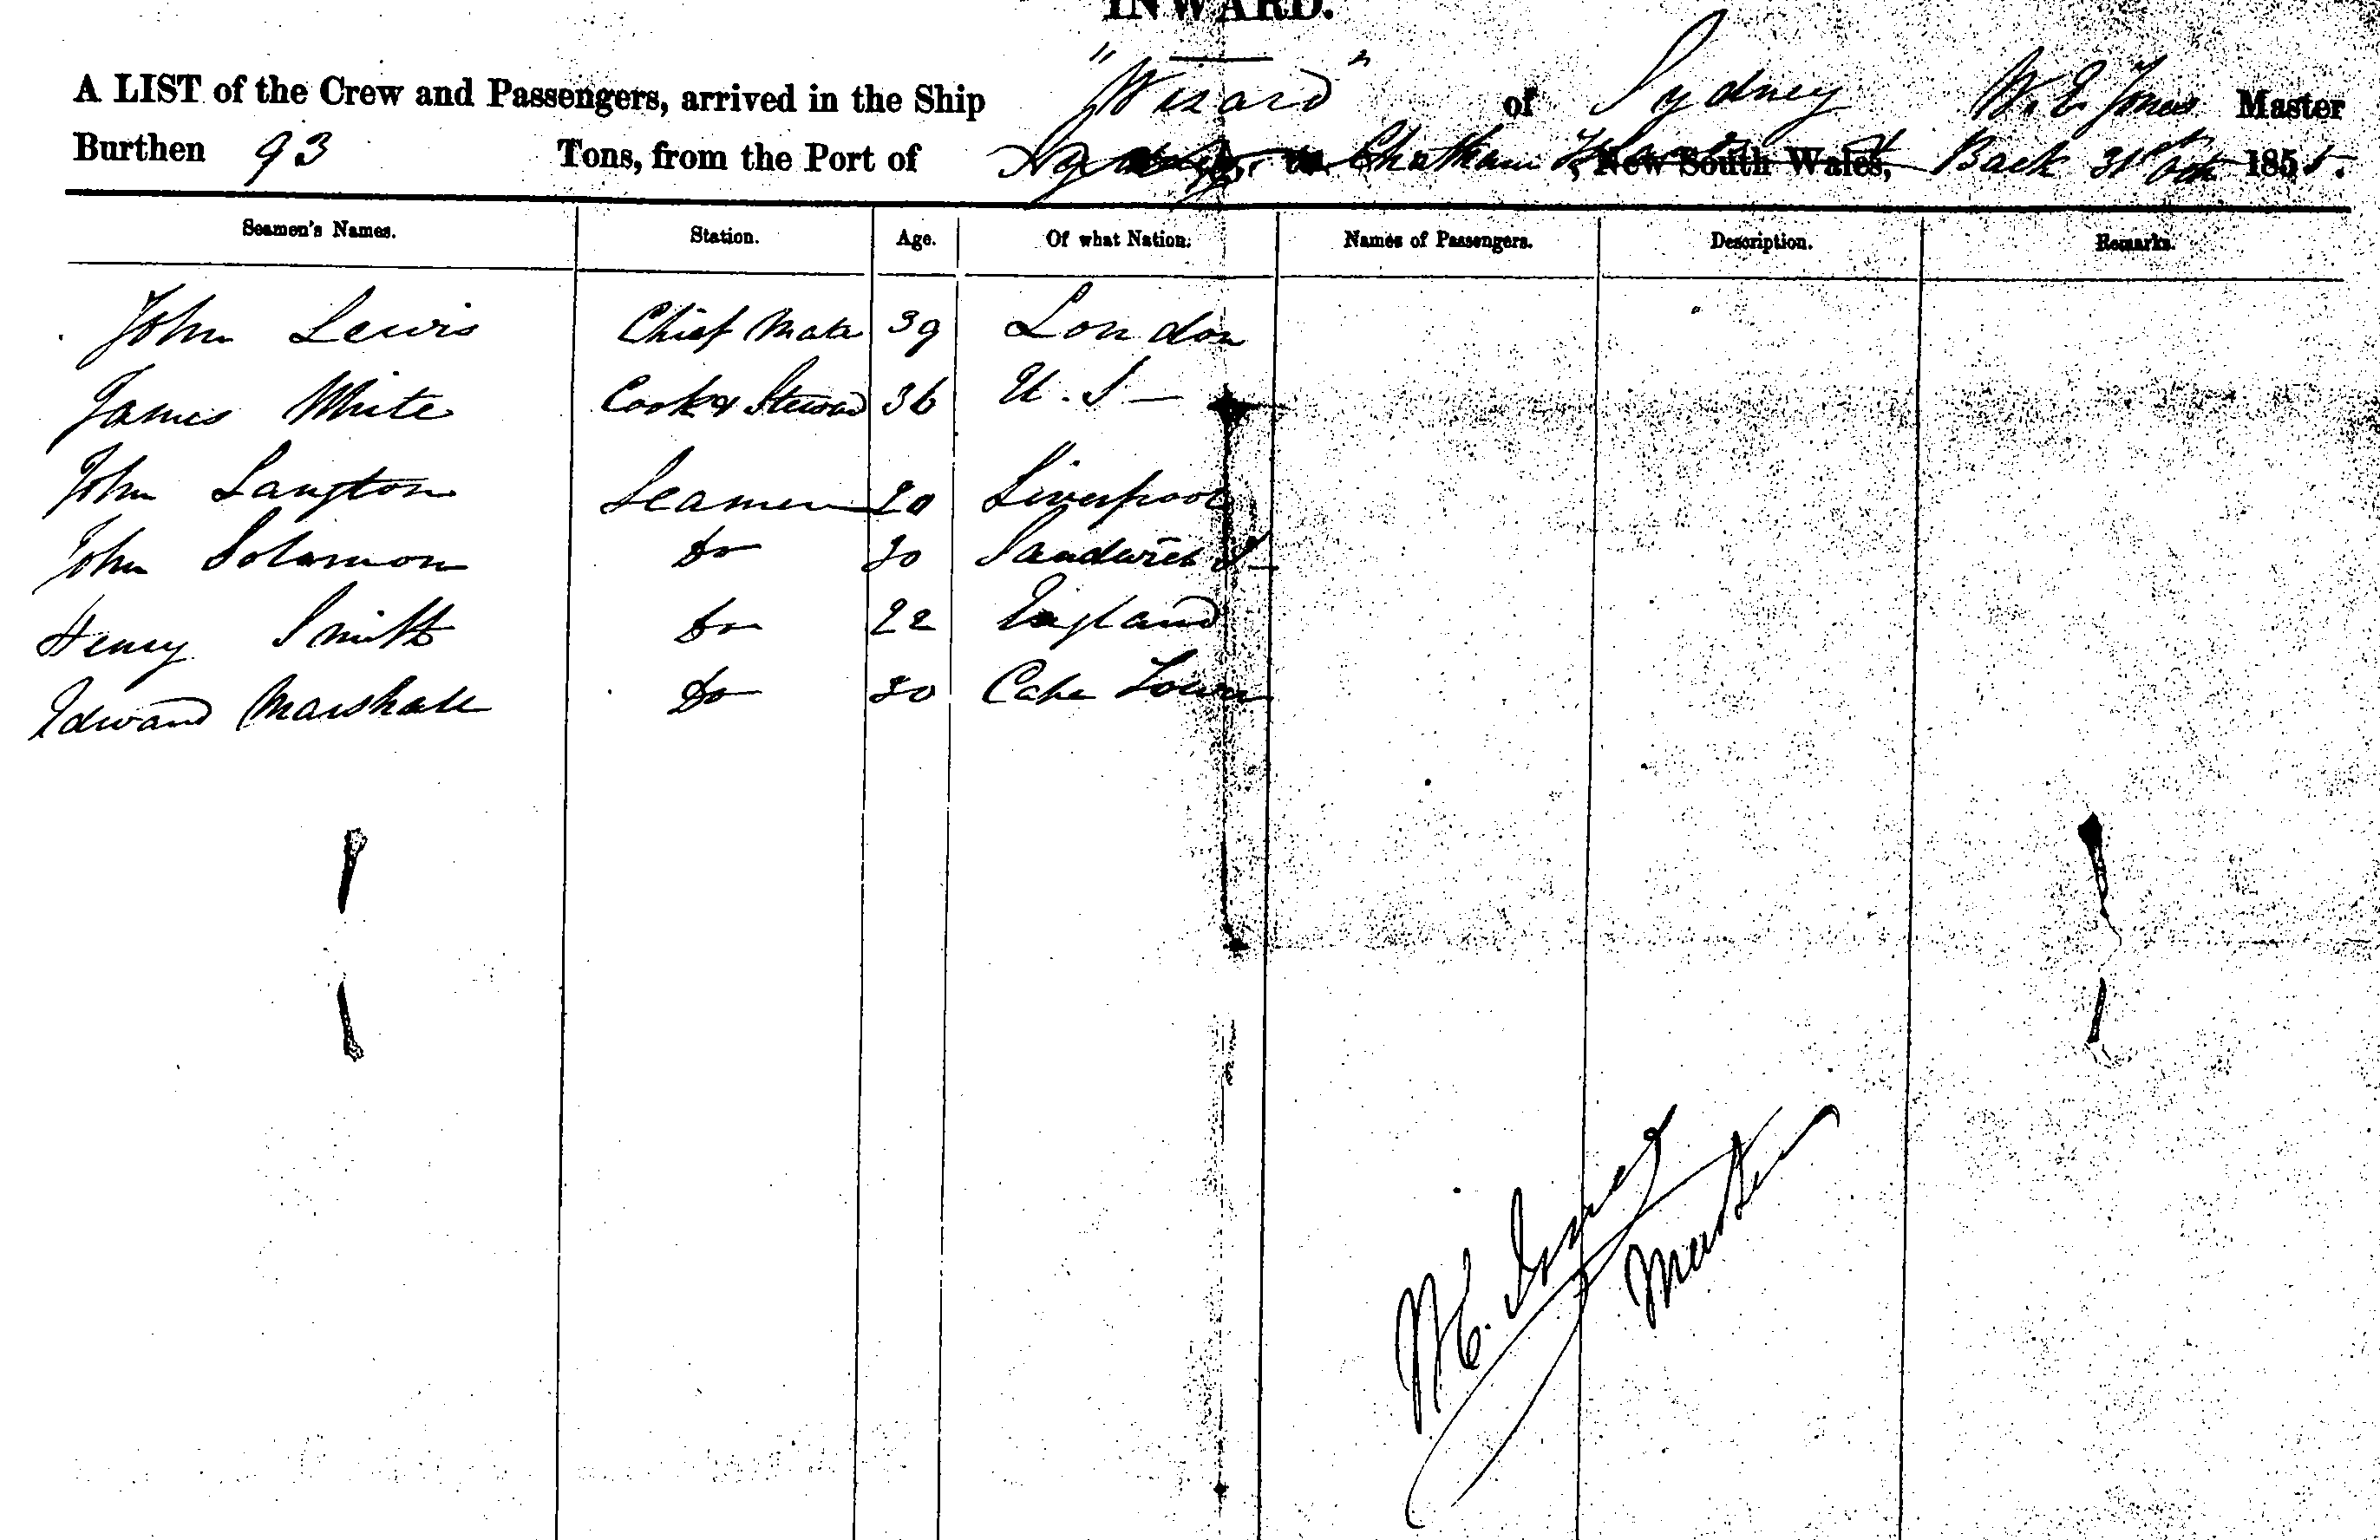 INWARD.
A LIST of the Crew and Passengers, arrived in the Ship "Wizard" of Sydney W. E. Jones Master
Burthen 93 Tons, from the Port of to Chatham New South Wales, Back 31st Oct 1855.
Seamen's Names. Station. Age. Of what Nation. Names of Passengers. Description. Remarks.
John Lewis Chief Mate 39 London
James White Cook & Steward 36 U.S—
John Langton Seamen 20 Liverpool
John Solomon Do 30 Sandwich I—
Henry Smith Do 22 England
Edward Marshall Do 30 Cape Town
W E. Jones
Master